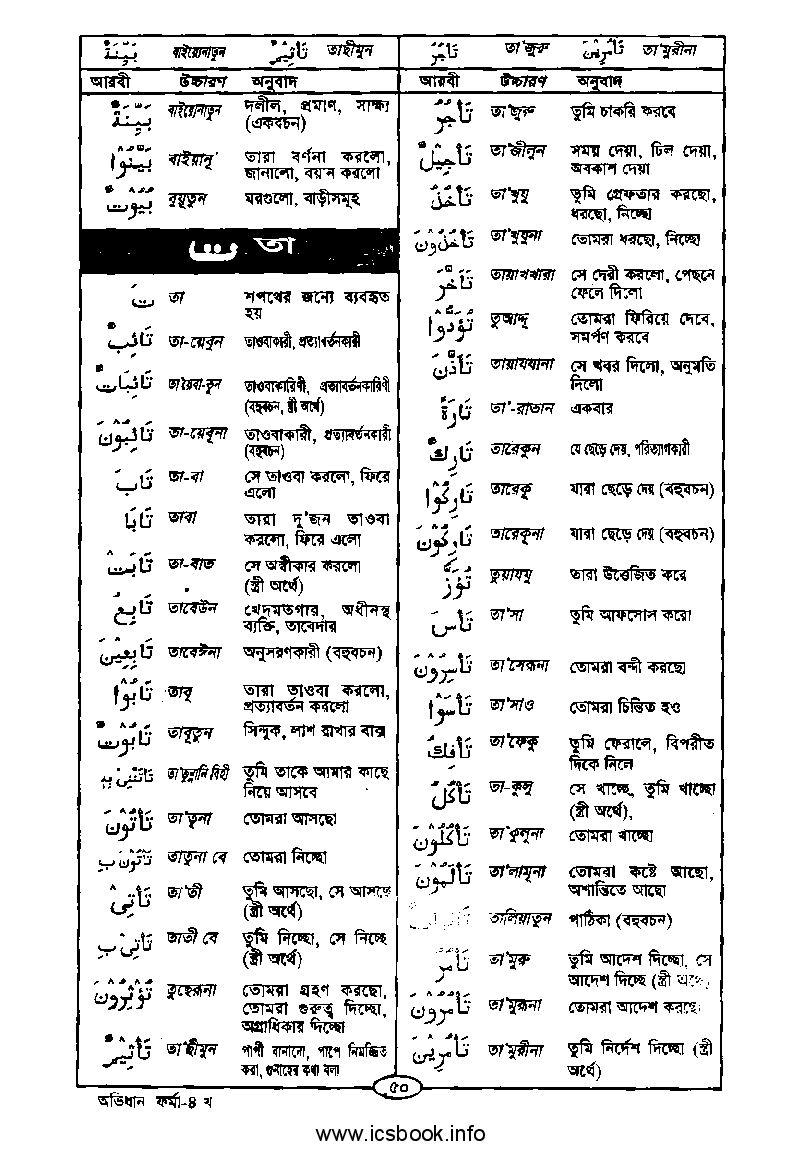 بَيِّنَةٌ বাইয়্যেনাতুন تَأْثِيْمٌ তা'ছীমুন تَأْجُرُ তা'জুরু تَأْمُرِيْنَ তা'মুরীনা
আরবী উচ্চারণ অনুবাদ আরবী উচ্চারণ অনুবাদ
بَيِّنَةٌ বাইয়্যেনাতুন দলীল, প্রমাণ, সাক্ষ্য
(একবচন)
بَيَّنُوْا বাইয়ানূ তারা বর্ণনা করলো,
জানালো, বয়ান করলো
بُيُوْتٌ বুয়ূতুন ঘরগুলো, বাড়ীসমূহ
ت তা
تَ তা শপথের জন্যে ব্যবহৃত
হয়
تَائِبٌ তা-য়েবুন তাওবাকারী, প্রত্যাবর্তনকারী
تَائِبَاتٌ তা'য়েবা-তুন তাওবাকারিণী, প্রত্যাবর্তনকারিণী
(বহুবচন, স্ত্রী অর্থে)
تَائِبُوْنَ তা-য়েবুনা তাওবাকারী, প্রত্যাবর্তনকারী
(বহুবচন)
تَابَ তা-বা সে তাওবা করলো, ফিরে
এলো
تَابَا তাবা তারা দু'জন তাওবা
করলো, ফিরে এলো
تَابَتْ তা-বাত সে অঙ্গীকার করলো
(স্ত্রী অর্থে)
تَابِعٌ তাবেউন খেদমতগার, অধীনস্থ
ব্যক্তি, তাবেদার
تَابِعِيْنَ তাবেঈনা অনুসরণকারী (বহুবচন)
تَابُوْا তাবূ তারা তাওবা করলো,
প্রত্যাবর্তন করলো
تَابُوْتٌ তাবূতুন সিন্দুক, লাশ রাখার বাক্স
تَأْتُنَّنِىْ بِهِ তা'তুন্নানি বিহী তুমি তাকে আমার কাছে
নিয়ে আসবে
تَأْتُوْنَ তা'তূনা তোমরা আসছো
تَأْتُوْنَ بِ তাতুনা বে তোমরা নিচ্ছো
تَأْتِىْ তা'তী তুমি আসছো, সে আসছে
(স্ত্রী অর্থে)
تَأْتِىْ بِ তাতী বে তুমি নিচ্ছো, সে নিচ্ছে
(স্ত্রী অর্থে)
تُؤْثِرُوْنَ তুছেরূনা তোমরা গ্রহণ করছো,
তোমরা গুরুত্ব দিচ্ছো,
অগ্রাধিকার দিচ্ছো
تَأْثِيْمٌ তা'ছীমুন পাপী বানালো, পাপে নিমজ্জিত
করা, গুনাহের কথা বলা
تَأْجُرُ তা'জুরু তুমি চাকরি করবে
تَأْجِيْلٌ তা'জীলুন সময় দেয়া, ঢিল দেয়া,
অবকাশ দেয়া
تَأْخُذُ তা'খুযু তুমি গ্রেফতার করছো,
ধরছো, নিচ্ছো
تَأْخُذُوْنَ তা'খুযুনা তোমরা ধরছো, নিচ্ছো
تَأَخَّرَ তায়াখখারা সে দেরী করলো, পেছনে
ফেলে দিলো
تُؤَدُّوْا তুআদ্দূ তোমরা ফিরিয়ে দেবে,
সমর্পণ করবে
تَأَذَّنَ তায়াযযানা সে খবর দিলো, অনুমতি
দিলো
تَارَةً তা'-রাতান একবার
تَارِكٌ তারেকুন যে ছেড়ে দেয়, পরিত্যাগকারী
تَارِكُوْا তারেকূ যারা ছেড়ে দেয় (বহুবচন)
تَارِكُوْنَ তারেকূনা যারা ছেড়ে দেয় (বহুবচন)
تَؤُزُّ তুয়াযযু তারা উত্তেজিত করে
تَأْسَ তা'সা তুমি আফসোস করো
تَأْسِرُوْنَ তা'সেরূনা তোমরা বন্দী করছো
تَأْسَوْا তা'সাও তোমরা চিন্তিত হও
تَأْفِكُ তা'ফেকু তুমি ফেরালে, বিপরীত
দিকে নিলে
تَأْكُلُ তা-কুলু সে খাচ্ছে, তুমি খাচ্ছো
(স্ত্রী অর্থে),
تَأْكُلُوْنَ তা'কুলূনা তোমরা খাচ্ছো
تَأْلَمُوْنَ তা'লামূনা তোমরা কষ্টে আছো,
অশান্তিতে আছো
তালিয়াতুন পাঠিকা (বহুবচন)
تَأْمُرُ তা'মুরু তুমি আদেশ দিচ্ছো, সে
আদেশ দিচ্ছে (স্ত্রী অর্থে)
تَأْمُرُوْنَ তা'মুরূনা তোমরা আদেশ করছো
تَأْمُرِيْنَ তা'মুরীনা তুমি নির্দেশ দিচ্ছো (স্ত্রী
অর্থে)
৫০
অভিধান ফর্মা-৪ খ
www.icsbook.info